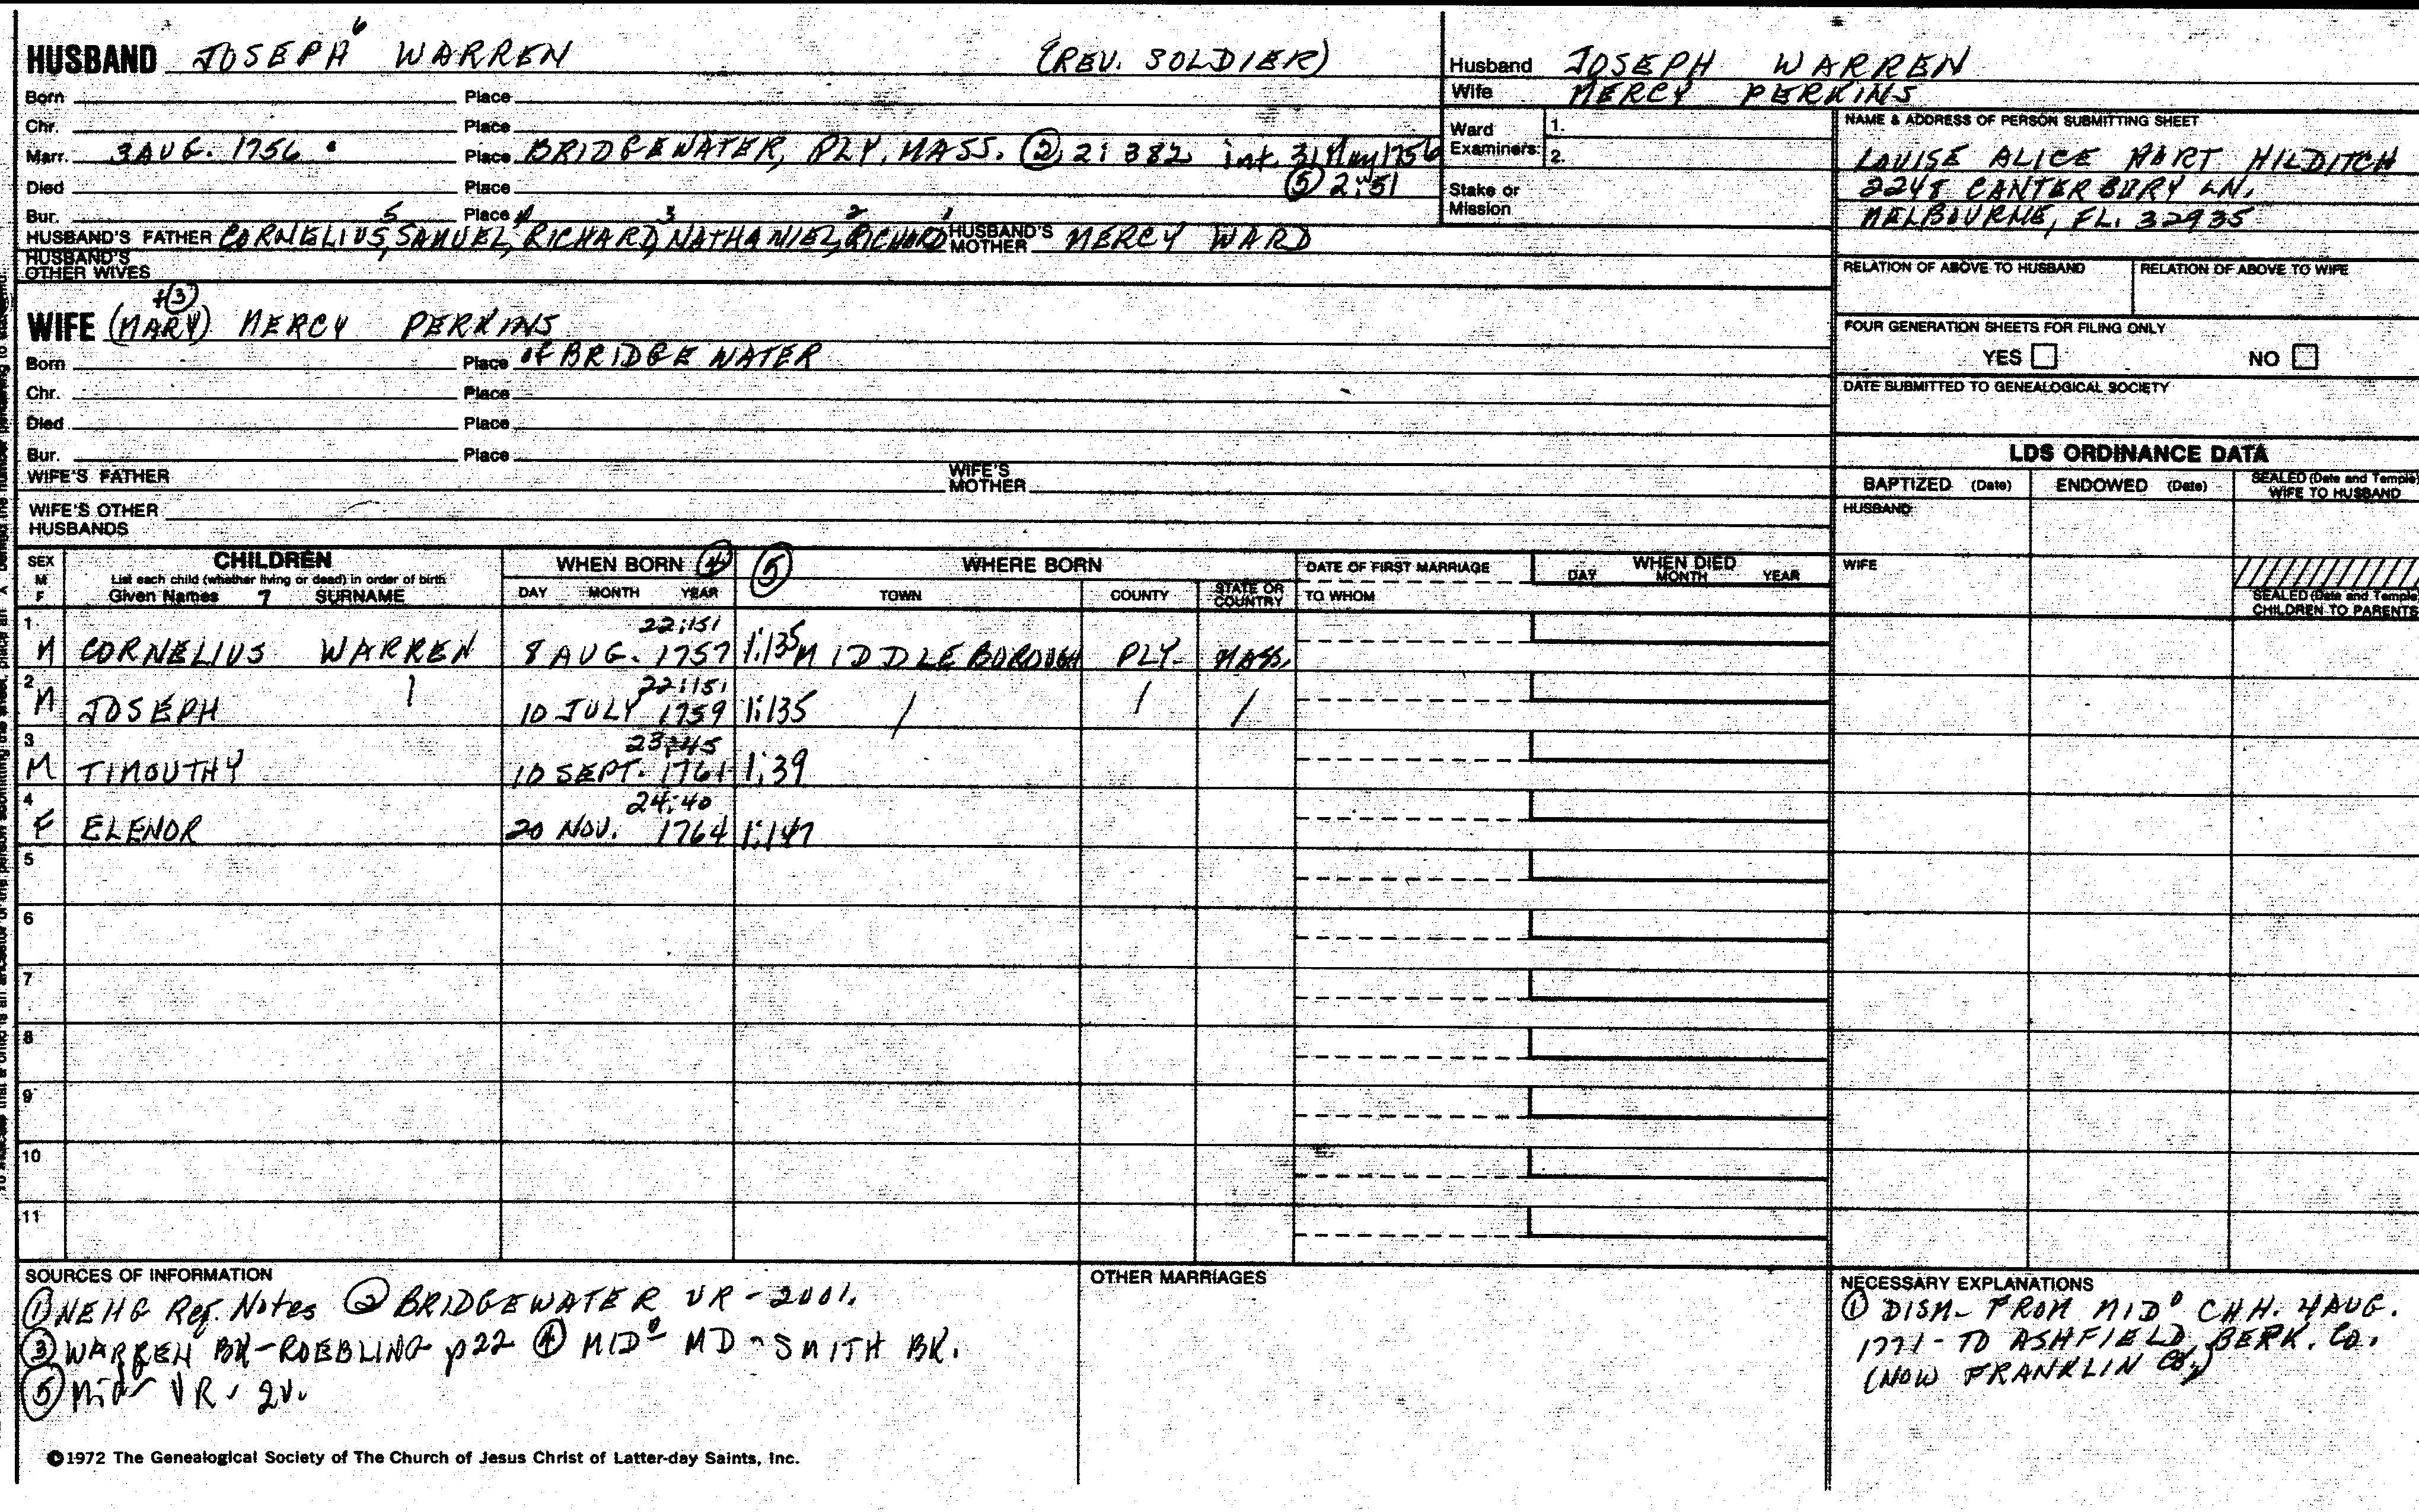 HUSBAND JOSEPH⁶ WARREN (REV. SOLDIER)
Born Place
Chr. Place
Marr. 3 AUG. 1756 Place BRIDGEWATER, PLY. MASS. ② 2:382 int. 31 May 1756
⑤ 2:51
Died Place
Bur. Place
HUSBAND'S FATHER CORNELIUS⁵, SAMUEL⁴, RICHARD³, NATHANIEL², RICHARD¹ HUSBAND'S MOTHER MERCY WARD
HUSBAND'S OTHER WIVES
+③
WIFE (MARY) MERCY PERKINS
Born Place of BRIDGEWATER
Chr. Place
Died Place
Bur. Place
WIFE'S FATHER WIFE'S MOTHER
WIFE'S OTHER HUSBANDS
Husband JOSEPH WARREN
Wife MERCY PERKINS
Ward Examiners: 1.
2.
Stake or Mission
NAME & ADDRESS OF PERSON SUBMITTING SHEET
LOUISE ALICE HART HILDITCH
2248 CANTERBURY LN.
MELBOURNE, FL. 32935
RELATION OF ABOVE TO HUSBAND RELATION OF ABOVE TO WIFE
FOUR GENERATION SHEETS FOR FILING ONLY
YES NO
DATE SUBMITTED TO GENEALOGICAL SOCIETY
LDS ORDINANCE DATA
BAPTIZED (Date) ENDOWED (Date) SEALED (Date and Temple) WIFE TO HUSBAND
HUSBAND
WIFE
SEALED (Date and Temple) CHILDREN TO PARENTS
SEX M F CHILDREN WHEN BORN ④ ⑤ WHERE BORN DATE OF FIRST MARRIAGE WHEN DIED
List each child (whether living or dead) in order of birth
Given Names 7 SURNAME DAY MONTH YEAR TOWN COUNTY STATE OR COUNTRY TO WHOM DAY MONTH YEAR
22:151
1 M CORNELIUS WARREN 8 AUG. 1757 1:135 MIDDLEBOROUGH PLY. MASS.
22:151
2 M JOSEPH 10 JULY 1759 1:135
3 M TIMOUTHY 10 SEPT. 1761 1:39
24:40
4 F ELENOR 20 NOV. 1764 1:147
5
6
7
8
9
10
11
SOURCES OF INFORMATION
① NEHG Reg. Notes ② BRIDGEWATER VR - 2vol.
③ WARREN BK - ROEBLING p22 ④ MIDº MD - SMITH BK.
⑤ Mid VR. 2v.
OTHER MARRIAGES
NECESSARY EXPLANATIONS
① DISM- FROM MIDº CHH. 4 AUG.
1771 - TO ASHFIELD, BERK. CO.
(NOW FRANKLIN CO.)
©1972 The Genealogical Society of The Church of Jesus Christ of Latter-day Saints, Inc.